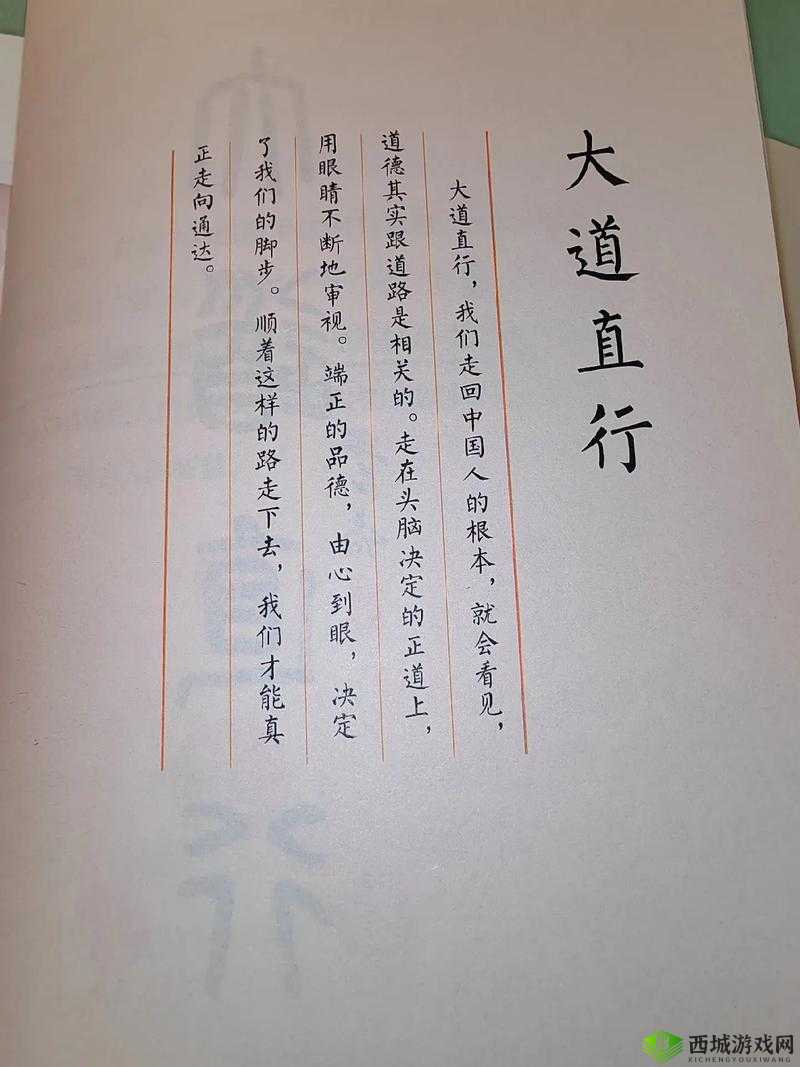 大道直行
大道直行，我们走回中国人的根本，就会看见，
道德其实跟道路是相关的。走在头脑决定的正道上，
用眼睛不断地审视。端正的品德，由心到眼，决定
了我们的脚步。顺着这样的路走下去，我们才能真
正走向通达。
西城游戏网
XICHENGYOUXIWANG